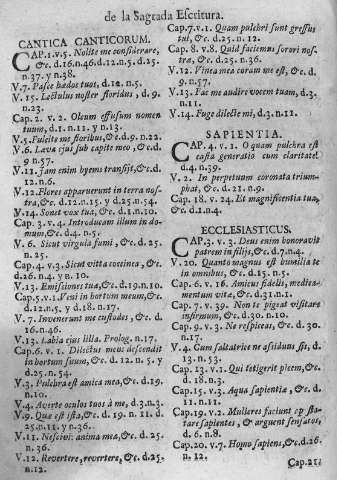 de la Sagrada Escritura.
CANTICA CANTICORUM.
CAP. 1. v. 5. Nolite me considerare,
&c. d. 16. n. 46. d. 12. n. 5. d. 25.
n. 37. y n. 38.
V. 7. Pasce hædos tuos, d. 12. n. 5.
V. 15. Lectulus noster floridus, d. 9.
n. 23.
Cap. 2. v. 2. Oleum effusum nomen
tuum, d. 1. n. 11. y n. 13.
V. 5. Fulcite me floribus, &c. d. 9. n. 22.
V. 6. Læva ejus sub capite meo, &c. d.
9 n. 57.
V. 11. jam enim hyems transijt, &c. d.
12. n. 6.
V. 12. Flores apparuerunt in terra nos-
tra, &c. d. 12. n. 15. y d. 25. n. 54.
V. 14. Sonet vox tua, &c. d. 1. n. 10.
Cap. 3. v. 4. Introducam illum in do-
mum, &c. d. 4. n. 5.
V. 6. Sicut virgula fumi, &c. d. 25.
n. 36.
Cap. 4. v. 3. Sicut vitta coccinea, &c.
d. 26. n. 4. y n. 10.
V. 13. Emissiones tua, &c. d. 19. n. 10.
Cap. 5. v. 1. Veni in hortum meum, &c.
d. 12. n. 5. y d. 18. n. 17.
V. 7. Invenerunt me custodes, &c. d.
16. n. 46.
V. 13. Labia ejus lilia. Prolog. n. 17.
Cap. 6. v. 1. Dilectus meus descendit
in hortum suum, &c. d. 12. n. 5. y
d. 25. n. 54.
V. 3. Pulchra est amica mea, &c. d. 19.
n. 10.
V. 4. Averte oculos tuos à me, d. 3. n. 3.
V. 9. Quæ est ista, &c. d. 19. n. 11. d.
25. n. 11. y n. 36.
V. 11. Nescivi: anima mea, &c. d. 25.
n. 36.
V. 12. Revertere, revertere, &c. d. 25.
n. 12.
Cap. 7. v. 1. Quam pulchri sunt gressus
tui, &c. d. 25. n. 12.
Cap. 8. v. 8. Quid faciemus sorori nos-
træ, &c. d. 25. n. 36.
V. 12. Vinea mea coram me est, &c. d.
9. n. 57.
V. 13. Fac me audire vocem tuam, d. 3.
n. 11.
V. 14. Fuge dilecte mi, d. 3. n. 11.
SAPIENTIA.
CAP. 4. v. 1. O quam pulchra est
casta generatio cum claritate!
d. 4. n. 39.
V. 2. In perpetuum coronata trium-
phat, &c. d. 21. n. 9.
Cap. 18. v. 24. Et magnificentia tua,
&c. d. 1. n. 4.
ECCLESIASTICUS.
CAP. 3. v. 3. Deus enim honoravit
patrem in filijs, &c. d. 7. n. 4.
V. 20. Quanto magnus est humilia te
in omnibus, &c. d. 15. n. 5.
Cap. 6. v. 16. Amicus fidelis, medica-
mentum vitæ, &c. d. 31. n. 1.
Cap. 7. v. 39. Non te pigeat visitare
infirmum, &c. d. 30. n. 10.
Cap. 9. v. 3. Ne respiceas, &c. d. 30.
n. 17.
V. 4. Cum saltatrice ne assiduus sis, d.
13. n. 53.
Cap. 13. v. 1. Qui tetigerit picem, &c.
d. 18. n. 3.
Cap. 15. v. 3. Aqua sapientiæ, &c. d.
11. n. 1.
Cap. 19. v. 2. Mulieres faciunt aposta-
tare sapientes, & arguent sensatos,
d. 6. n. 8.
Cap. 20. v. 7. Homo sapiens, &c. d. 26.
n. 12.
Cap. 21.